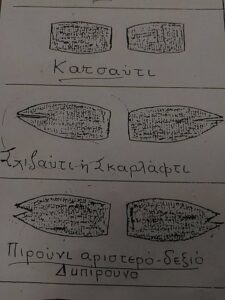 Κατσαύτι
Σχιζαύτι-ή Σκαρλάφτι
Πιρούνι αριστερό-δεξιό
Διπίρουνο